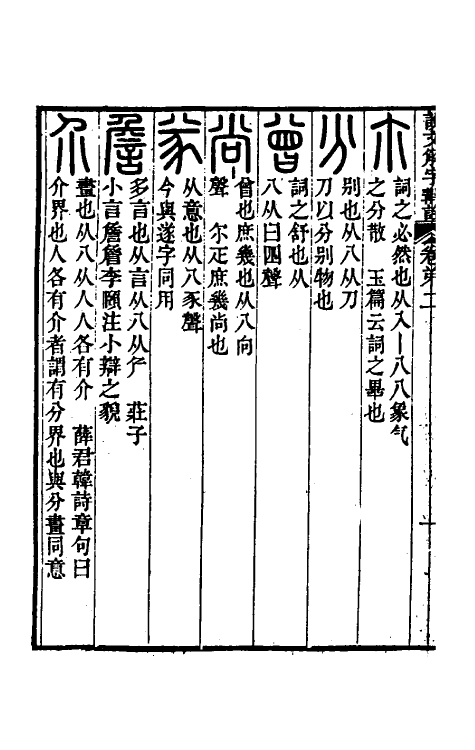 說文解字 卷弟二
尒
詞之必然也从入丨八八象气
之分散　玉篇云詞之畢也
分
别也从八从刀
刀以分别物也
曾
詞之舒也从
八从曰𡆧聲
尚
曾也庶幾也从八向
聲　尔疋庶幾尚也
㒸
从意也从八豕聲
今與遂字同用
詹
多言也从言从八从厃　莊子
小言詹詹李頤注小辯之貌
介
畫也从八从人人各有介　薛君韓詩章句曰
介界也人各有介者謂有分界也與分畫同意